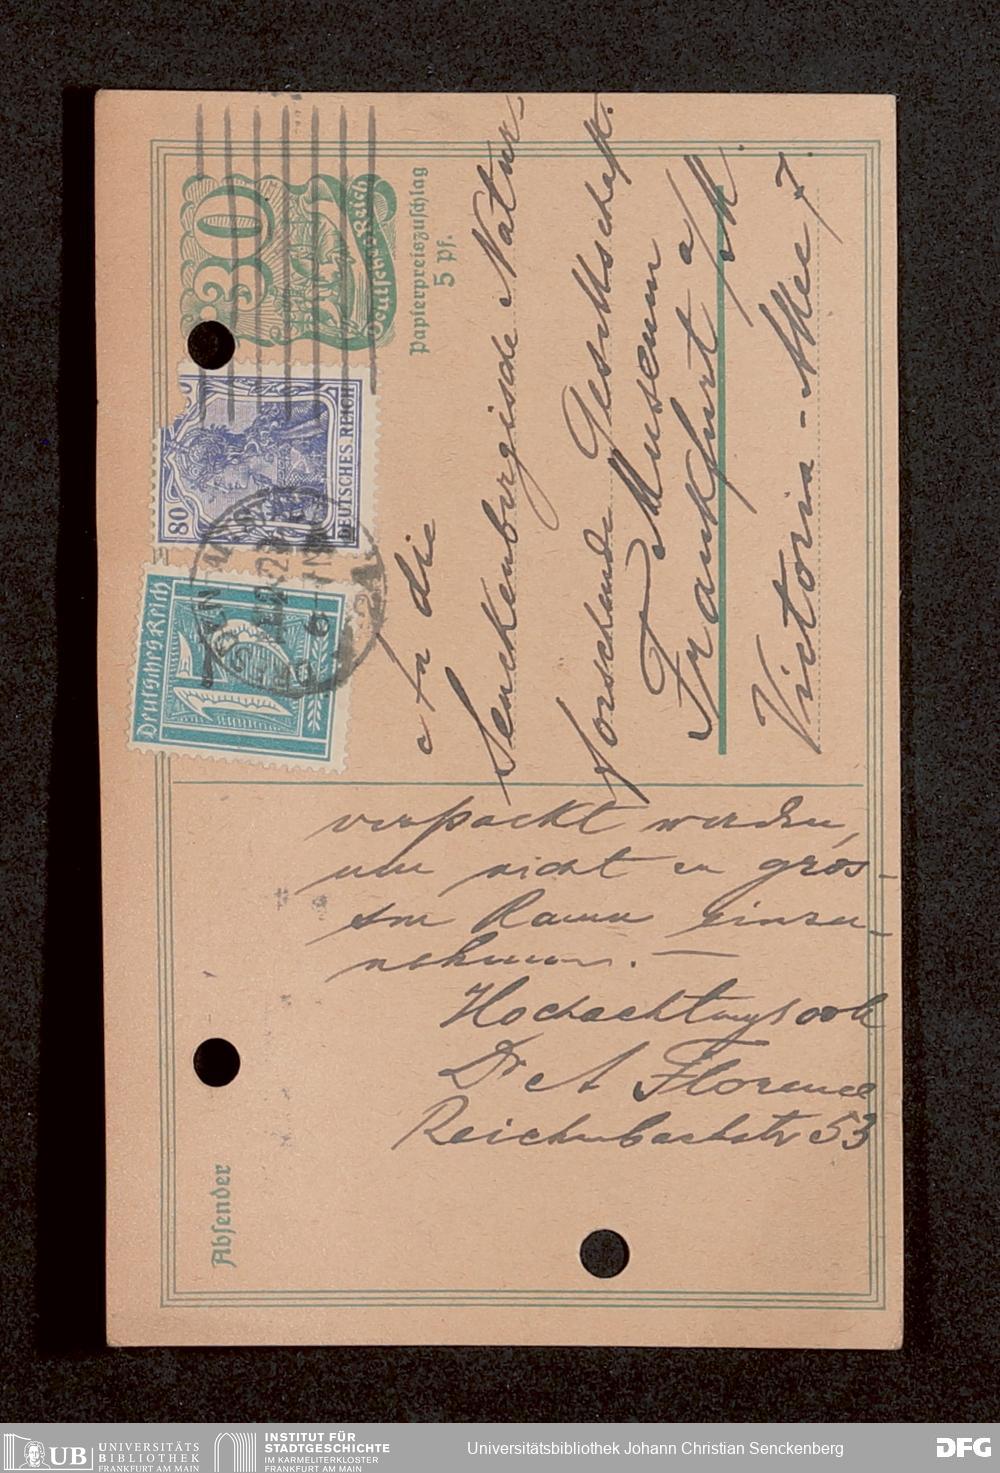 30
Deutsches Reich
Papierpreiszuschlag
5 Pf.
80
DEUTSCHES REICH
Deutsches Reich
An die
Senckenbergische Natur-
forschende Gesellschaft.
Museum
Frankfurt a/M.
Victoria-Allee 7.
verpackt werden,
um nicht zu gros-
sen Raum einzu-
nehmen. —
Hochachtungsvoll
Dr A Florence
Reichenbachstr 53
Absender
UB
UNIVERSITÄTS
BIBLIOTHEK
FRANKFURT AM MAIN
INSTITUT FÜR
STADTGESCHICHTE
IM KARMELITERKLOSTER
FRANKFURT AM MAIN
Universitätsbibliothek Johann Christian Senckenberg
DFG